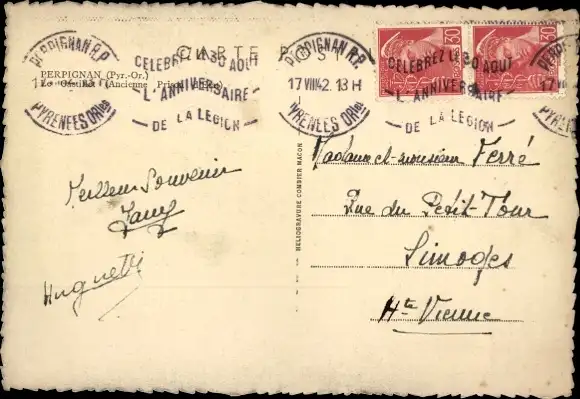 CARTE POSTALE
PERPIGNAN (Pyr.-Or.)
Le Castillet (Ancienne Prison
PERPIGNAN R.P.
PYRENEES ORles
CELEBREZ LE 30 AOUT
L'ANNIVERSAIRE
DE LA LEGION
PERPIGNAN R.P.
17 VIII 42. 13 H
PYRENEES ORles
CELEBREZ LE 30 AOUT
L'ANNIVERSAIRE
DE LA LEGION
30
30
HELIOGRAVURE COMBIER MACON
Meilleur Souvenir
Huguette
Madame et monsieur Ferré
Rue du Petit-Tour
Limoges
Hte Vienne